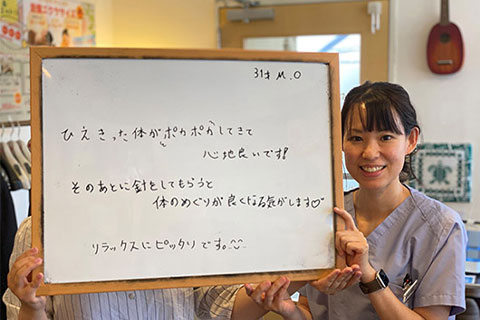 31才 M.O
ひえきった体がポカポカしてきて
心地良いです!
そのあとに針をしてもらうと
体のめぐりが良くなる気がします♡
リラックスにピッタリです。^^